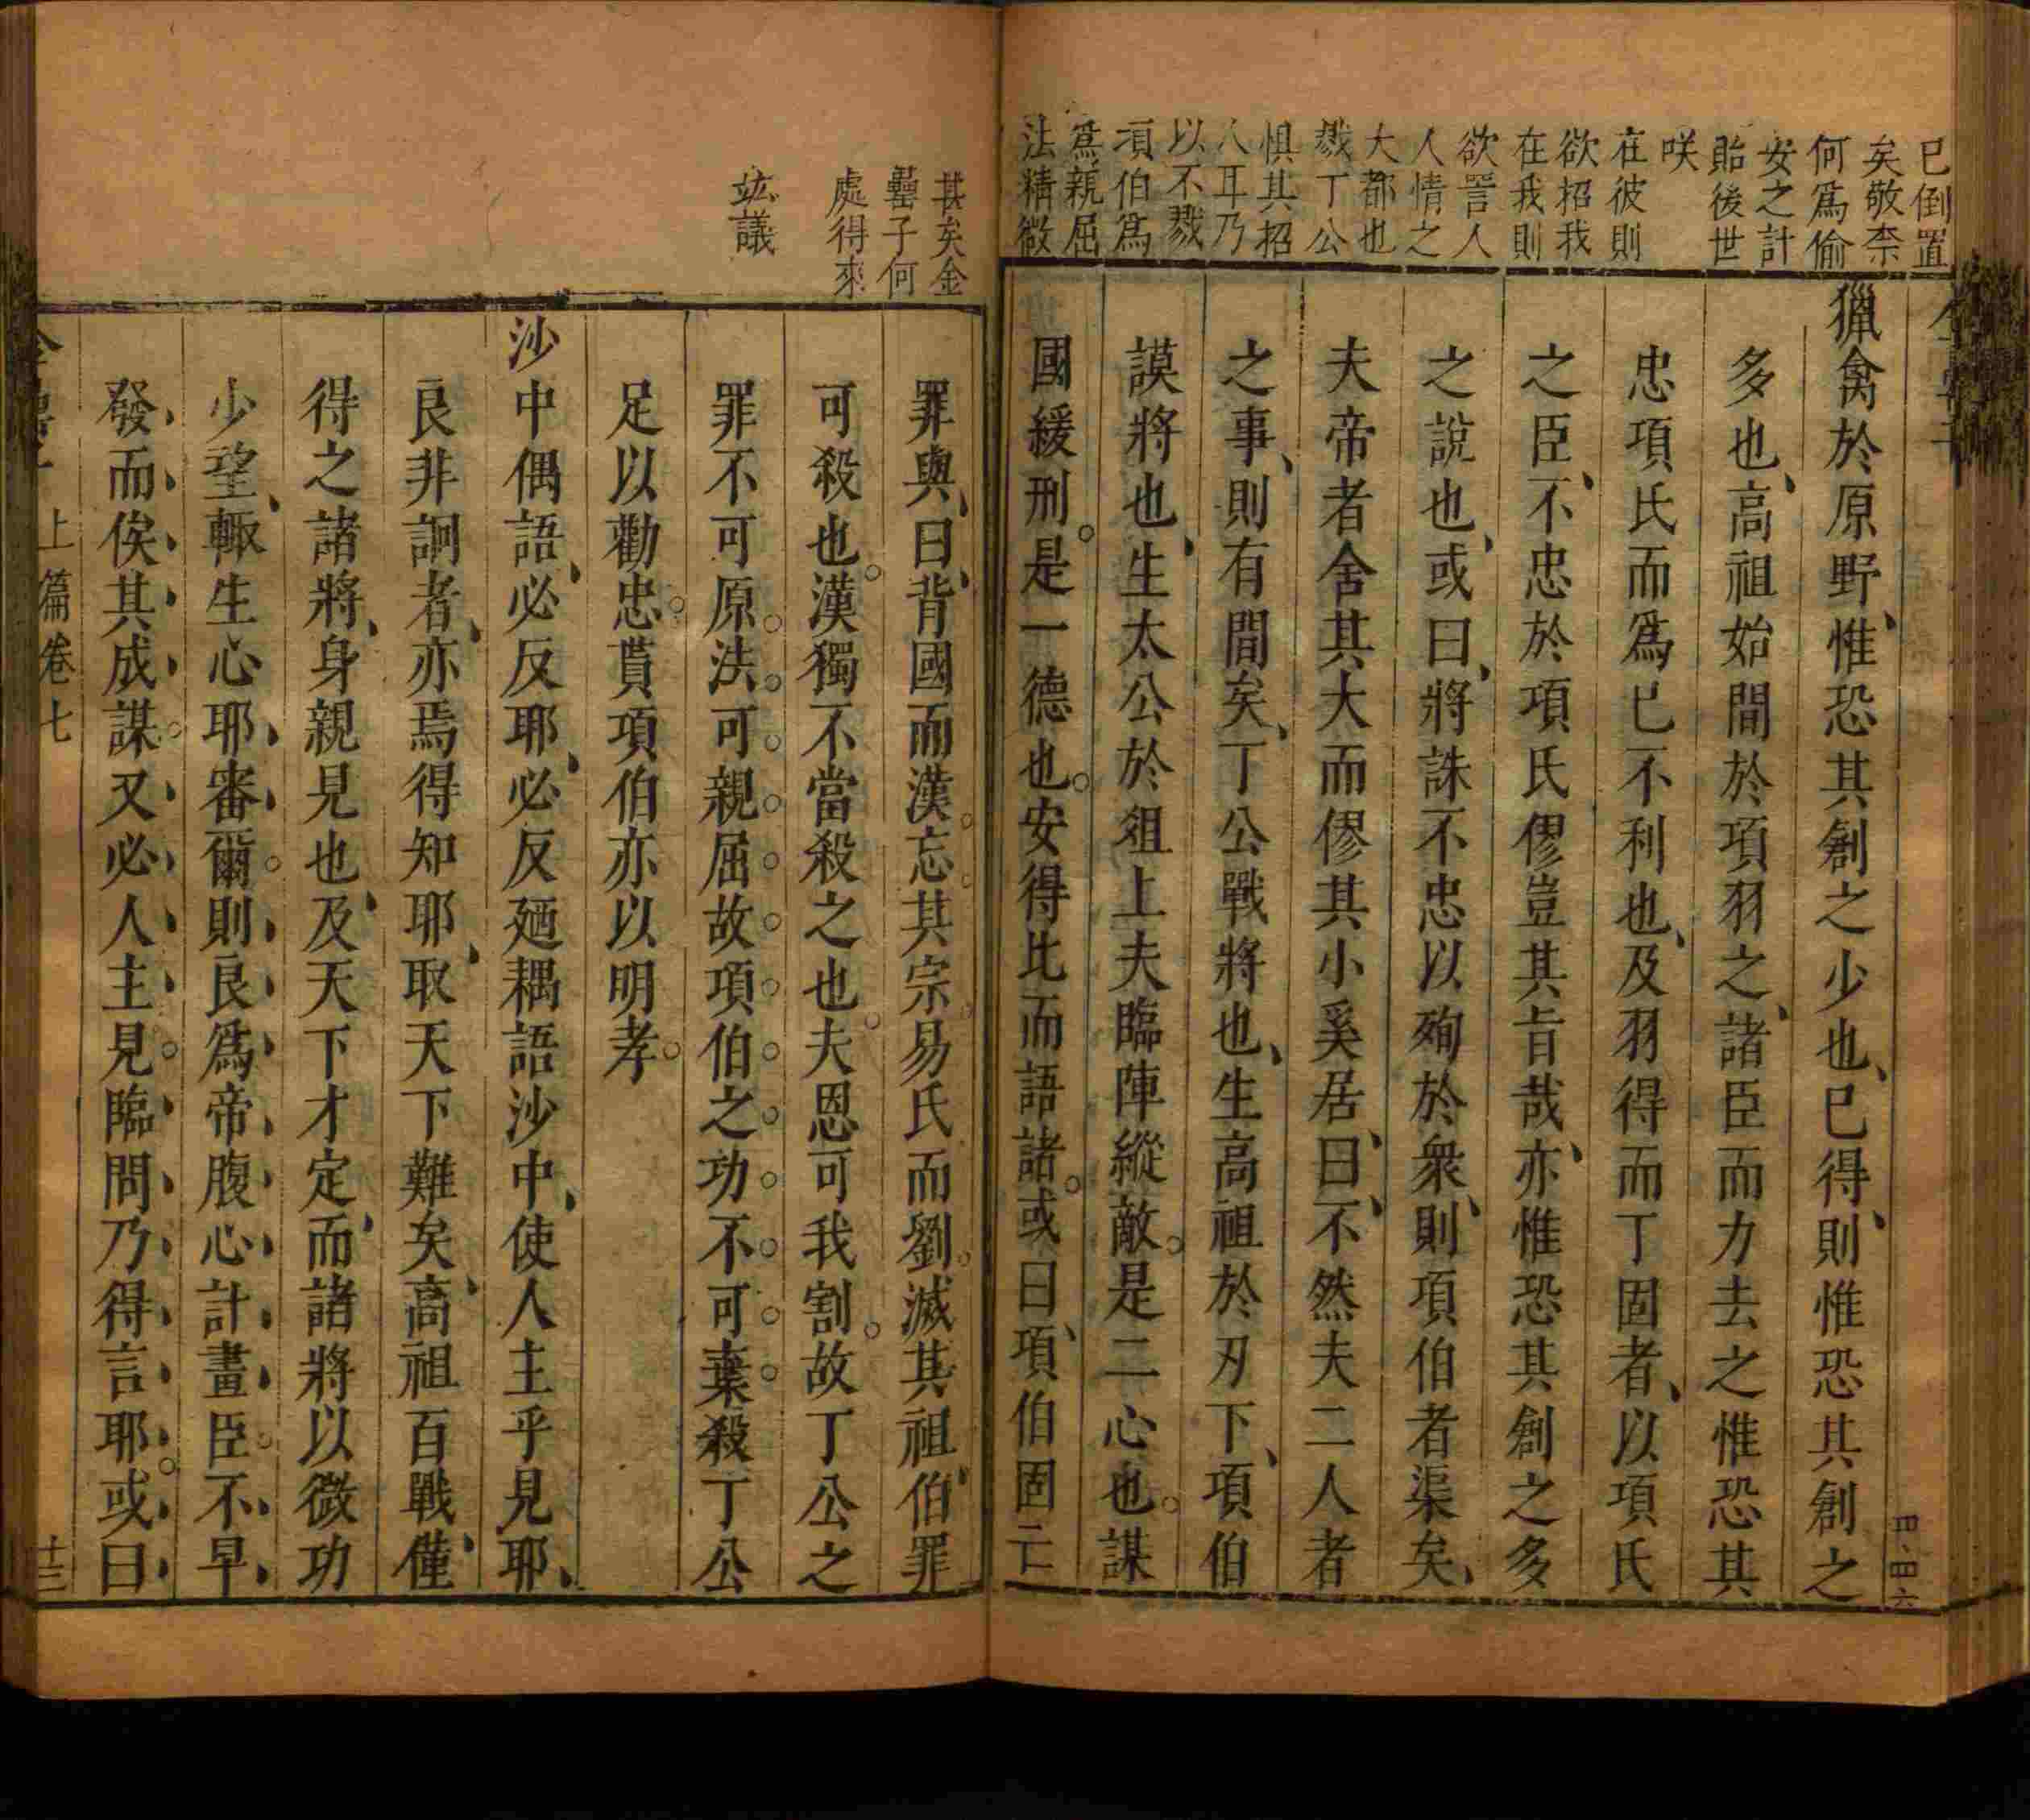 已倒置
矣敬柰
何爲偷
安之計
貽後世
咲
在彼則
欲招我
在我則
欲詈人
人情之
大都也
戮丁公
惧其招
人耳乃
以不戮
項伯爲
爲親屈
法精微
獵禽於原野惟恐其創之少也已得則惟恐其創之
多也高祖始間於項羽之諸臣而力去之惟恐其
忠項氏而爲已不利也及羽得而丁固者以項氏
之臣不忠於項氏僇豈其旨哉亦惟恐其創之多
之說也或曰將誅不忠以殉於衆則項伯者渠矣
夫帝者舍其大而僇其小奚居曰不然夫二人者
之事則有間矣丁公戰將也生高祖於刃下項伯
謨將也生太公於俎上夫臨陣縱敵是二心也謀
國緩刑是一德也安得比而語諸或曰項伯固二
四四六
甚矣金
罍子何
處得來
竑議
罪與曰背國而漢忘其宗易氏而劉滅其祖伯罪
可殺也漢獨不當殺之也夫恩可我割故丁公之
罪不可原法可親屈故項伯之功不可棄殺丁公
足以勸忠貰項伯亦以明孝
沙中偶語必反耶必反廼耦語沙中使人主乎見耶
良非詗者亦焉得知耶取天下難矣高祖百戰僅
得之諸將身親見也及天下才定而諸將以微功
少望輙生心耶審爾則良爲帝腹心計畫臣不早
發而俟其成謀又必人主見臨問乃得言耶或曰
上篇卷七
十三